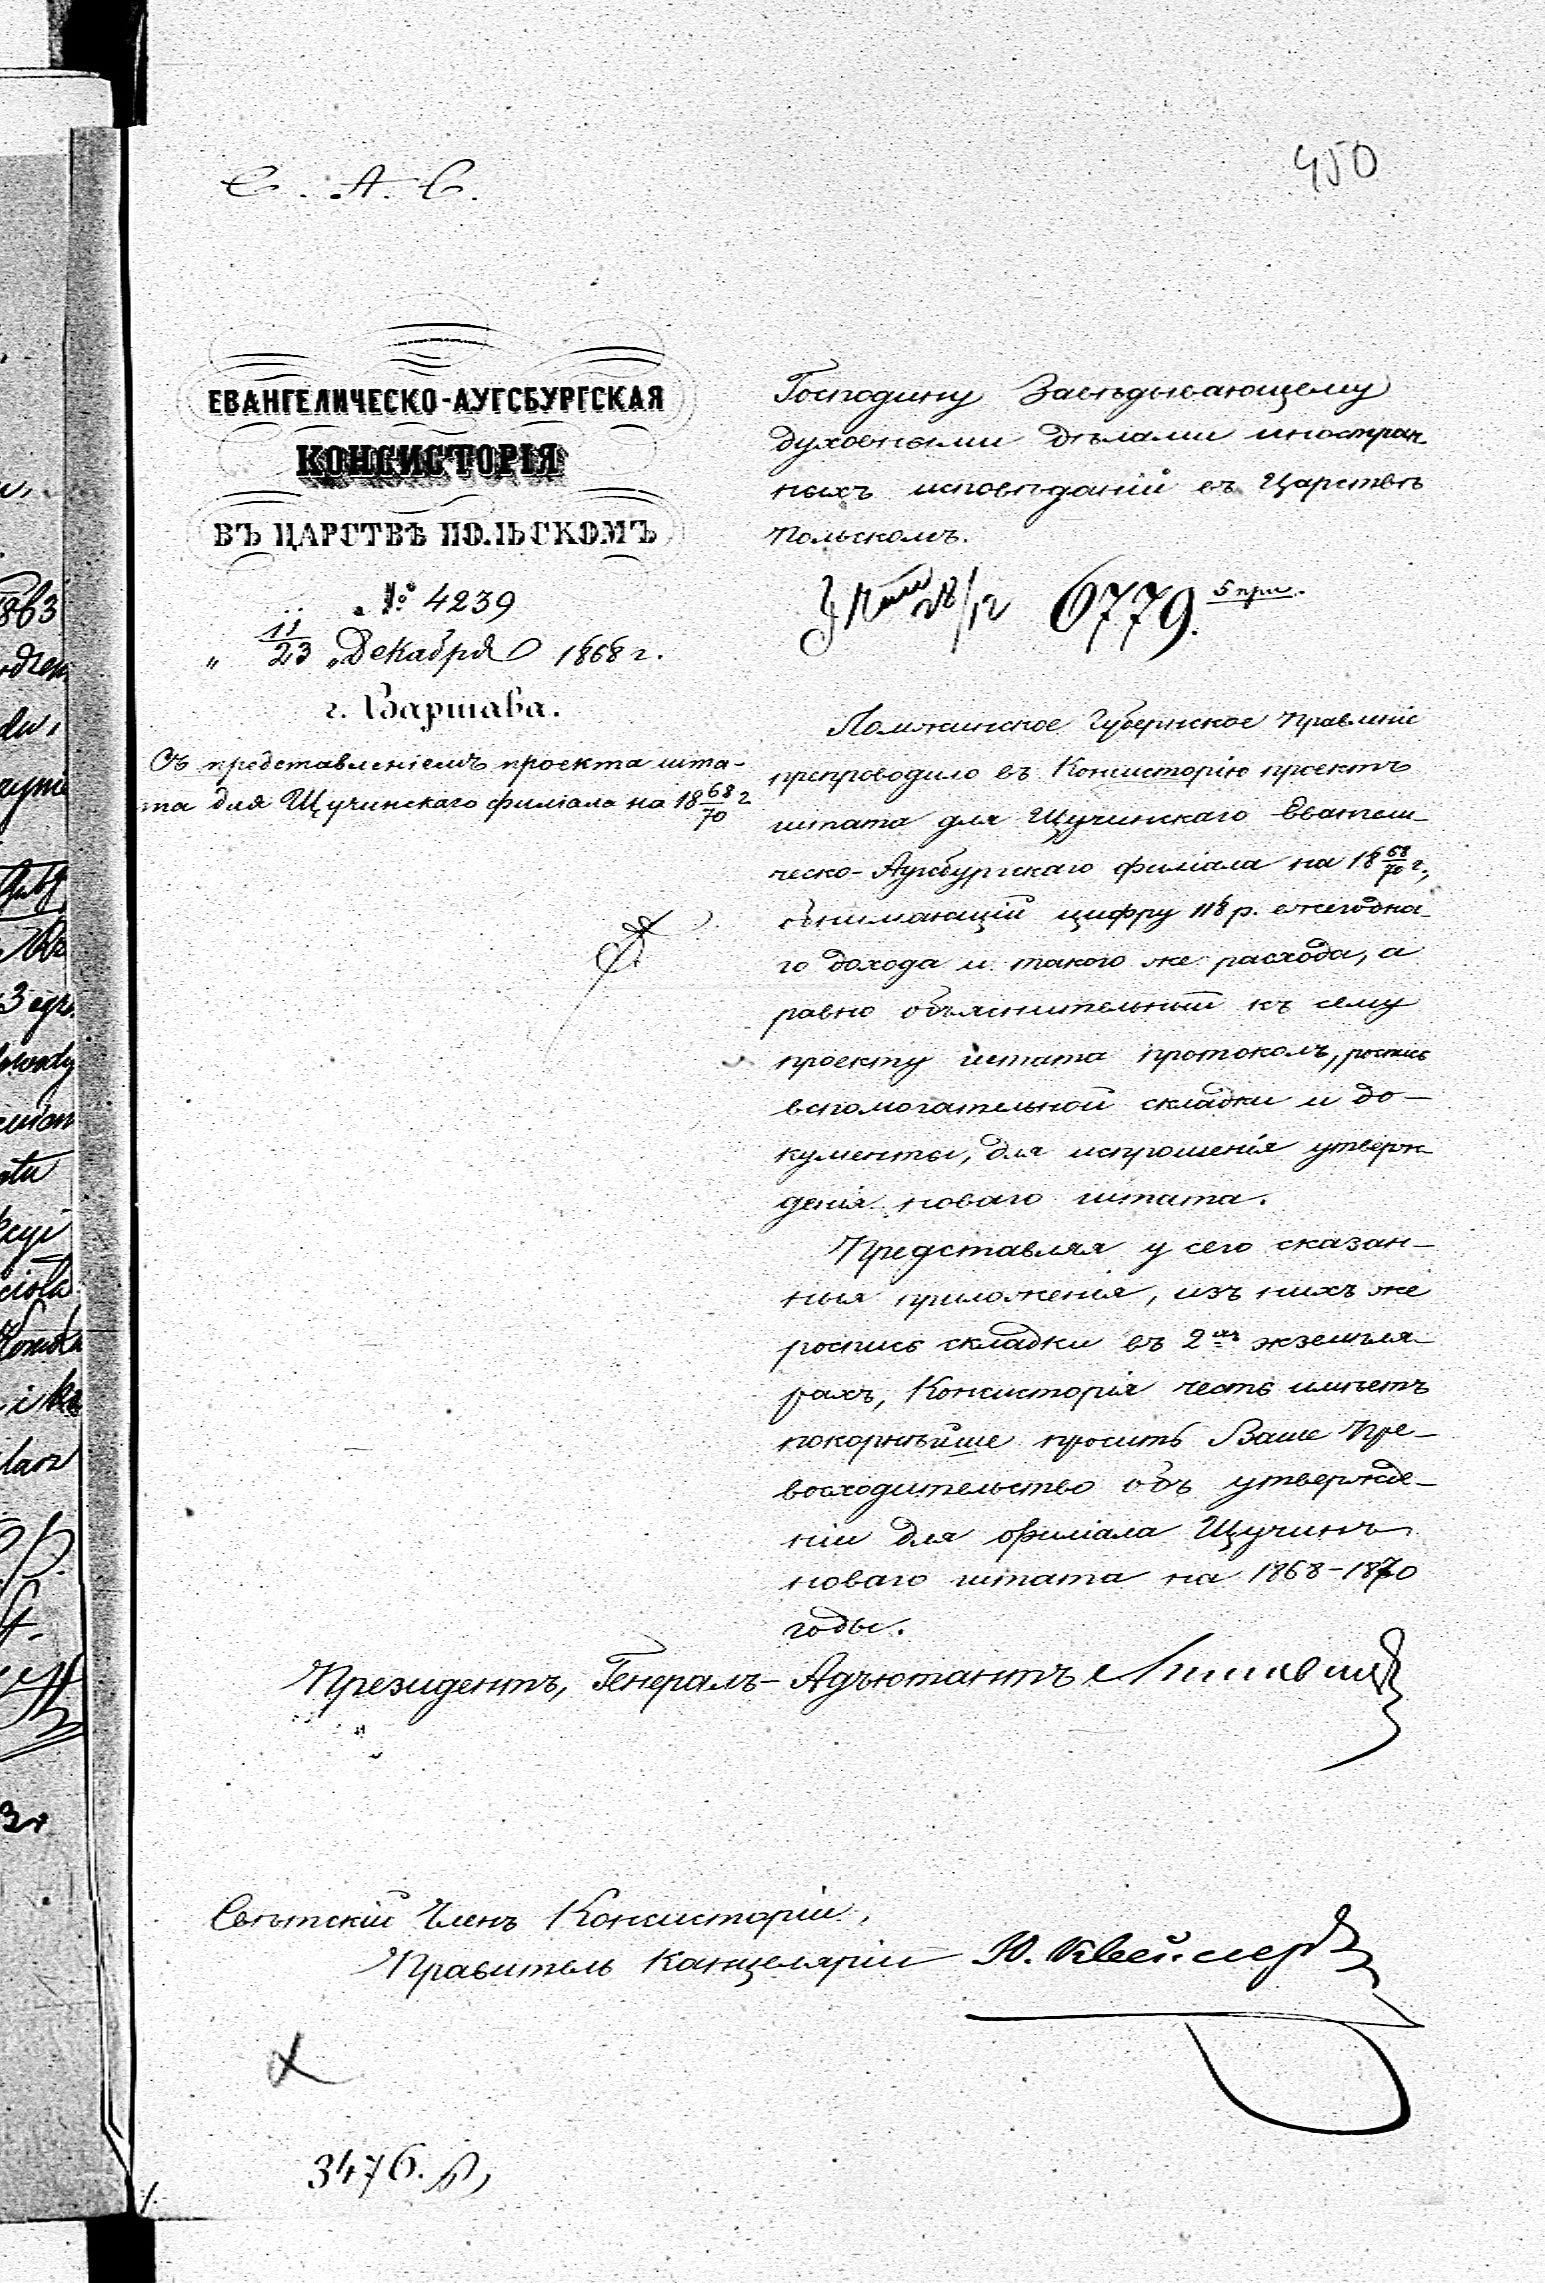 Е. А. С.
450
ЕВАНГЕЛИЧЕСКО-АУГСБУРГСКАЯ
КОНСИСТОРІЯ
ВЪ ЦАРСТВѢ ПОЛЬСКОМЪ
№ 4239
„ 11/23 „ Декабря 1868 г.
г. Варшава.
Съ представленіемъ проекта шта-
та для Щучинскаго филіала на 18 68/70 г
Господину Завѣдывающему
духовными дѣлами иностран
ныхъ исповѣданій въ Царствѣ
Польскомъ.
28/12 6779. 5 при.
Ломжинское Губернское Правленіе
препроводило въ Консисторію проектъ
штата для Щучинскаго Евангели-
ческо-Аугсбургскаго филіала на 18 68/70 г.,
обнимающій цифру 118 р. ежегодна-
го дохода и такого же расхода, а
равно объяснительный къ сему
проекту штата протоколъ, роспись
вспомогательной складки и до-
кументы, для испрошенія утверж-
денія новаго штата.
Представляя у сего сказан-
ныя приложенія, изъ нихъ же
роспись складки въ 2хъ экземпля-
рахъ, Консисторія честь имѣетъ
покорнѣйше просить Ваше Пре-
восходительство объ утвержде-
ніи для филіала Щучинъ
новаго штата на 1868-1870
годы.
Президентъ, Генералъ-Адъютантъ
Свѣтскій Членъ Консисторіи,
Правитель Канцеляріи Ю. Квейслеръ
3476.